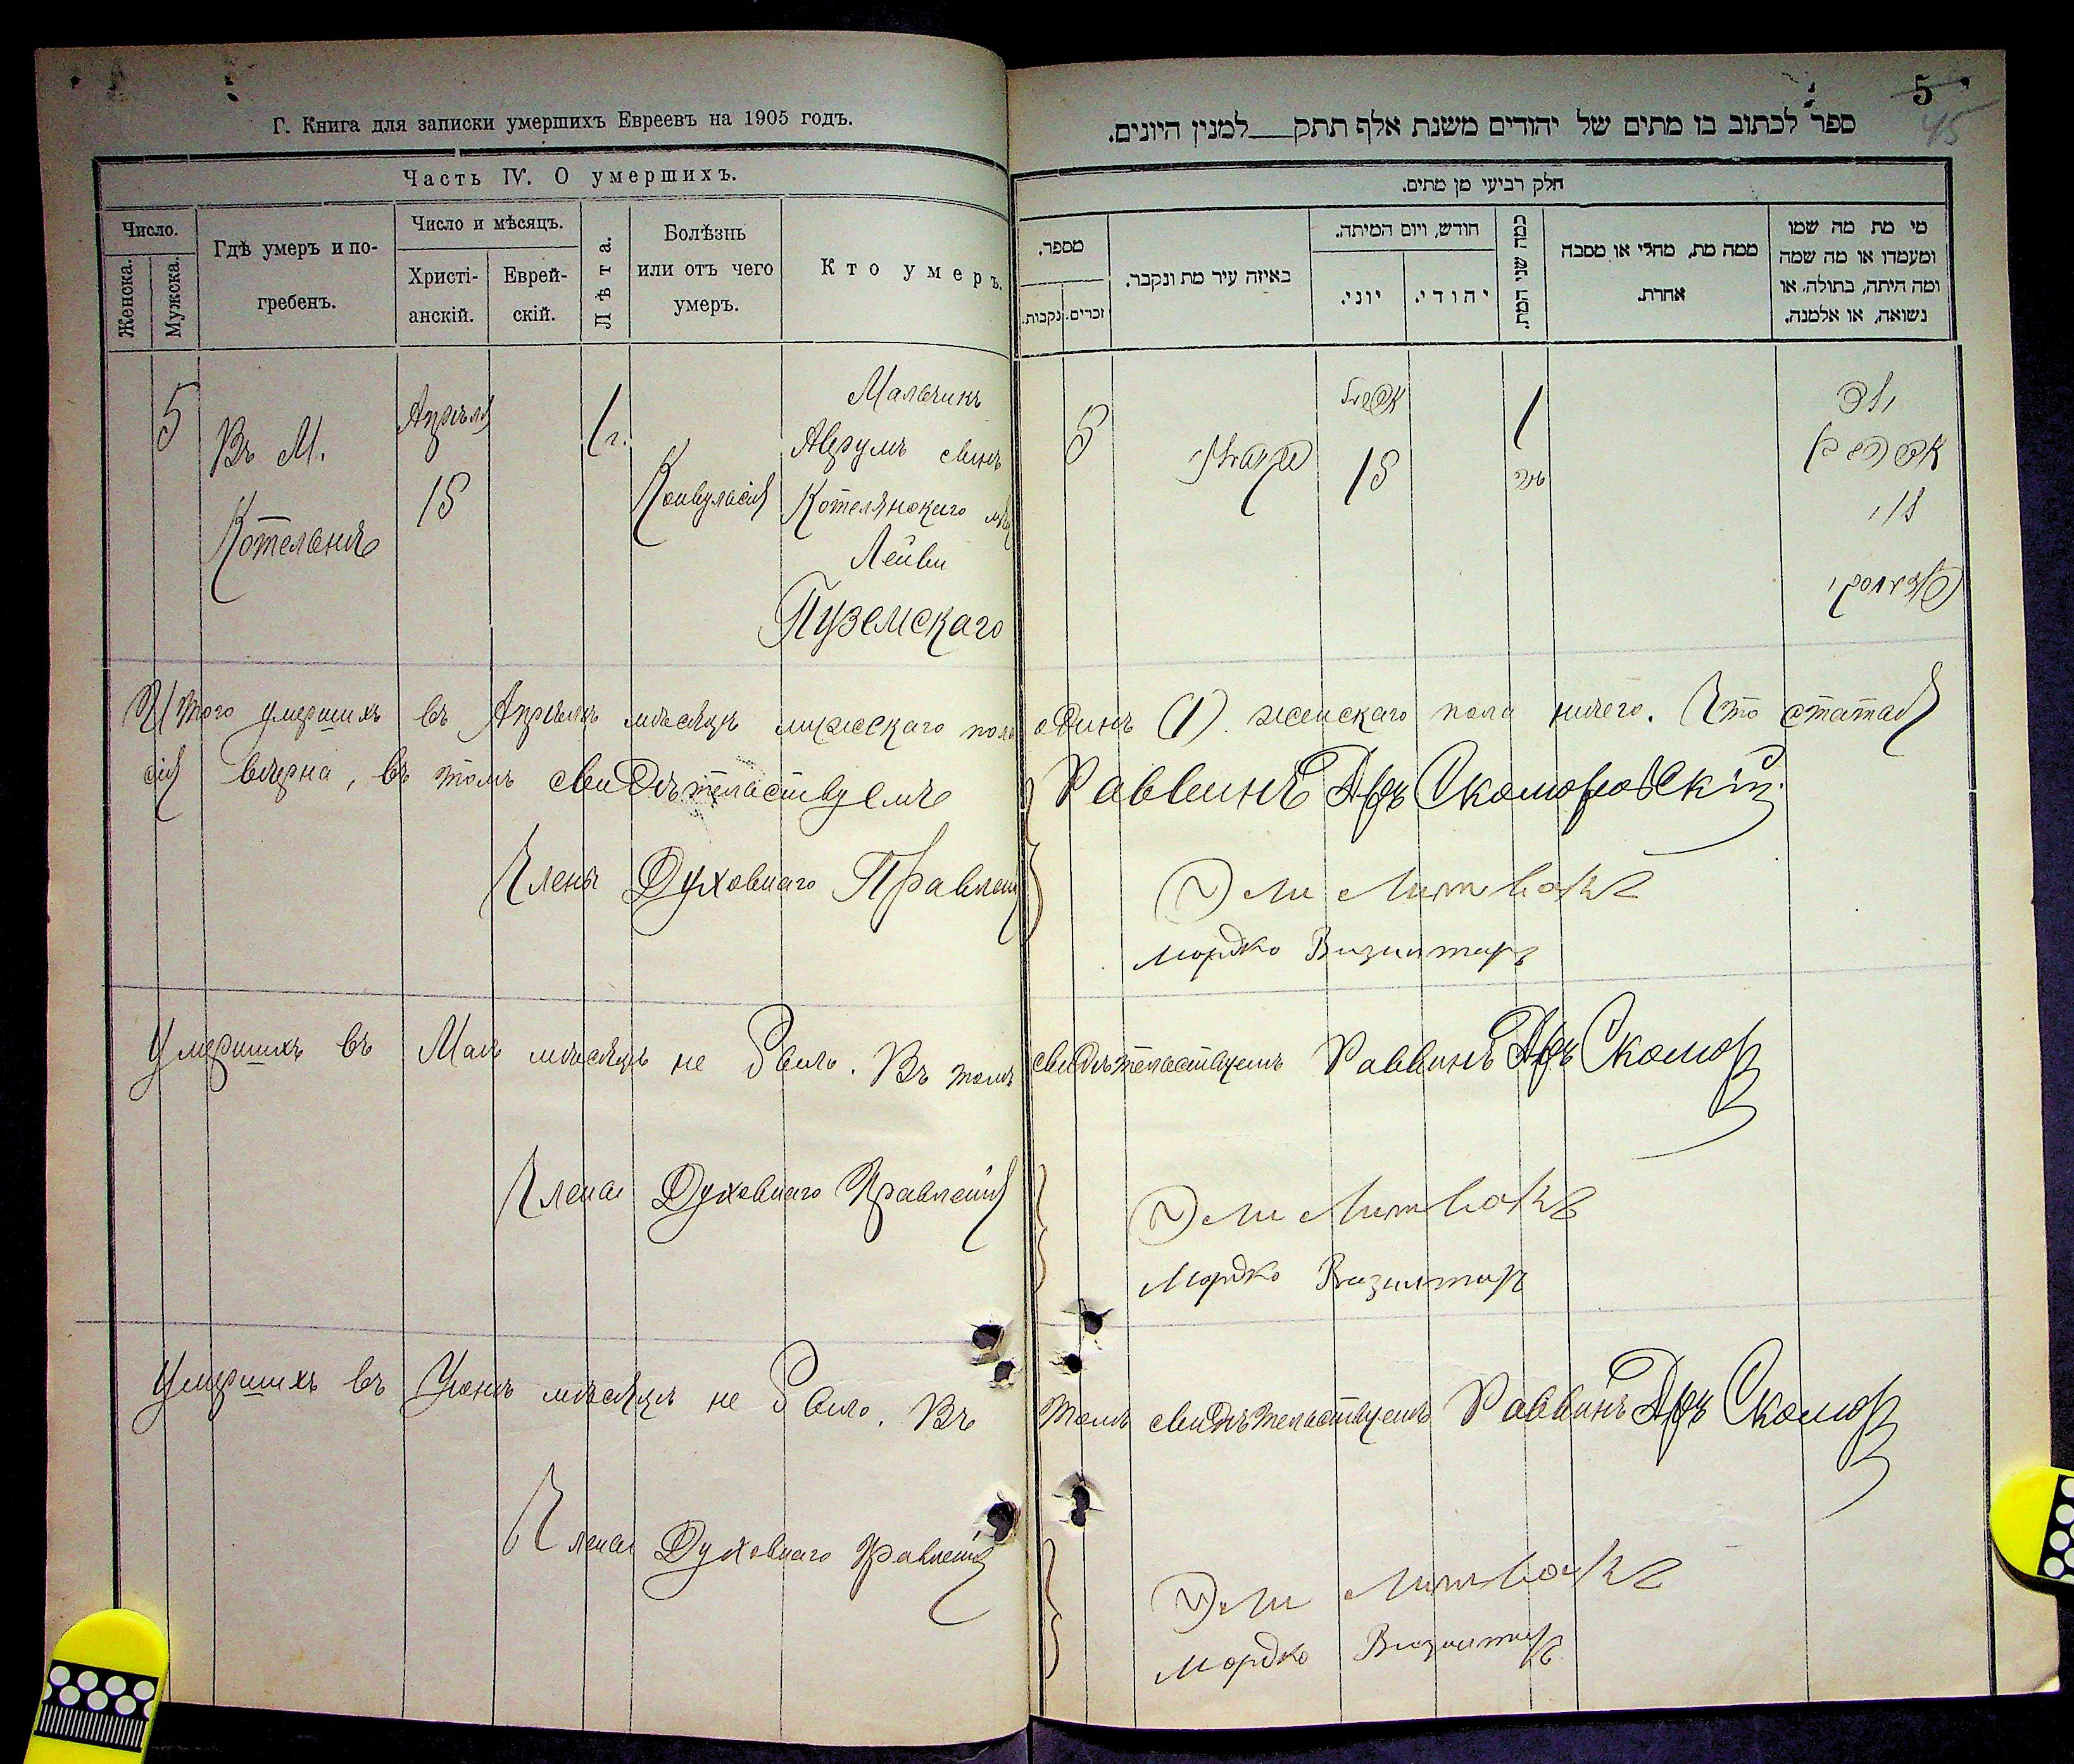 Г. Книга для записки умершихъ Евреевъ на 1905 годъ.
Часть IV. О умершихъ.
Число.
Женска.
Мужска.
Гдѣ умеръ и по-
гребенъ.
Число и мѣсяцъ.
Христі-
анскій.
Еврей-
скій.
Лѣта.
Болѣзнь
или отъ чего
умеръ.
Кто умеръ.
5
Въ М.
Котелань
Апрѣля
15
1 г.
Конвульсія
Мальчикъ
Аврумъ сынъ
Котелянскаго
Лейви
Пуземскаго
Итого умершихъ въ Апрѣлѣ мѣсяцѣ мужскаго пола одинъ (1). женскаго пола ничего. Что статья
сія вѣрна, въ томъ свидѣтельствуемъ Раввинъ Др Скоморовскій
Члены Духовнаго Правленія
Эли Литвакъ
Мордко Визилтеръ
Умершихъ въ Маѣ мѣсяцѣ не было. Въ томъ свидѣтельствуемъ Раввинъ Др Скомор
Члены Духовнаго Правленія
Эли Литвакъ
Мордко Визилтеръ
Умершихъ въ Іюнѣ мѣсяцѣ не было. Въ томъ свидѣтельствуемъ Раввинъ Др Скомор
Члены Духовнаго Правленія
Эли Литвакъ
Мордко Визилтеръ
5
45
ספר לכתוב בו מתים של יהודים משנת אלף תתק__למנין היונים.
חלק רביעי מן מתים.
מספר.
נקבות.
זכרים.
באיזה עיר מת ונקבר.
חודש, ויום המיתה.
יוני.
יהודי.
כמה שני המת.
ממה מת, מחלי או מסבה
אחרת.
מי מת מה שמו
ומעמדו או מה שמה
ומה היתה, בתולה, או
נשואה, או אלמנה.
5
15
1